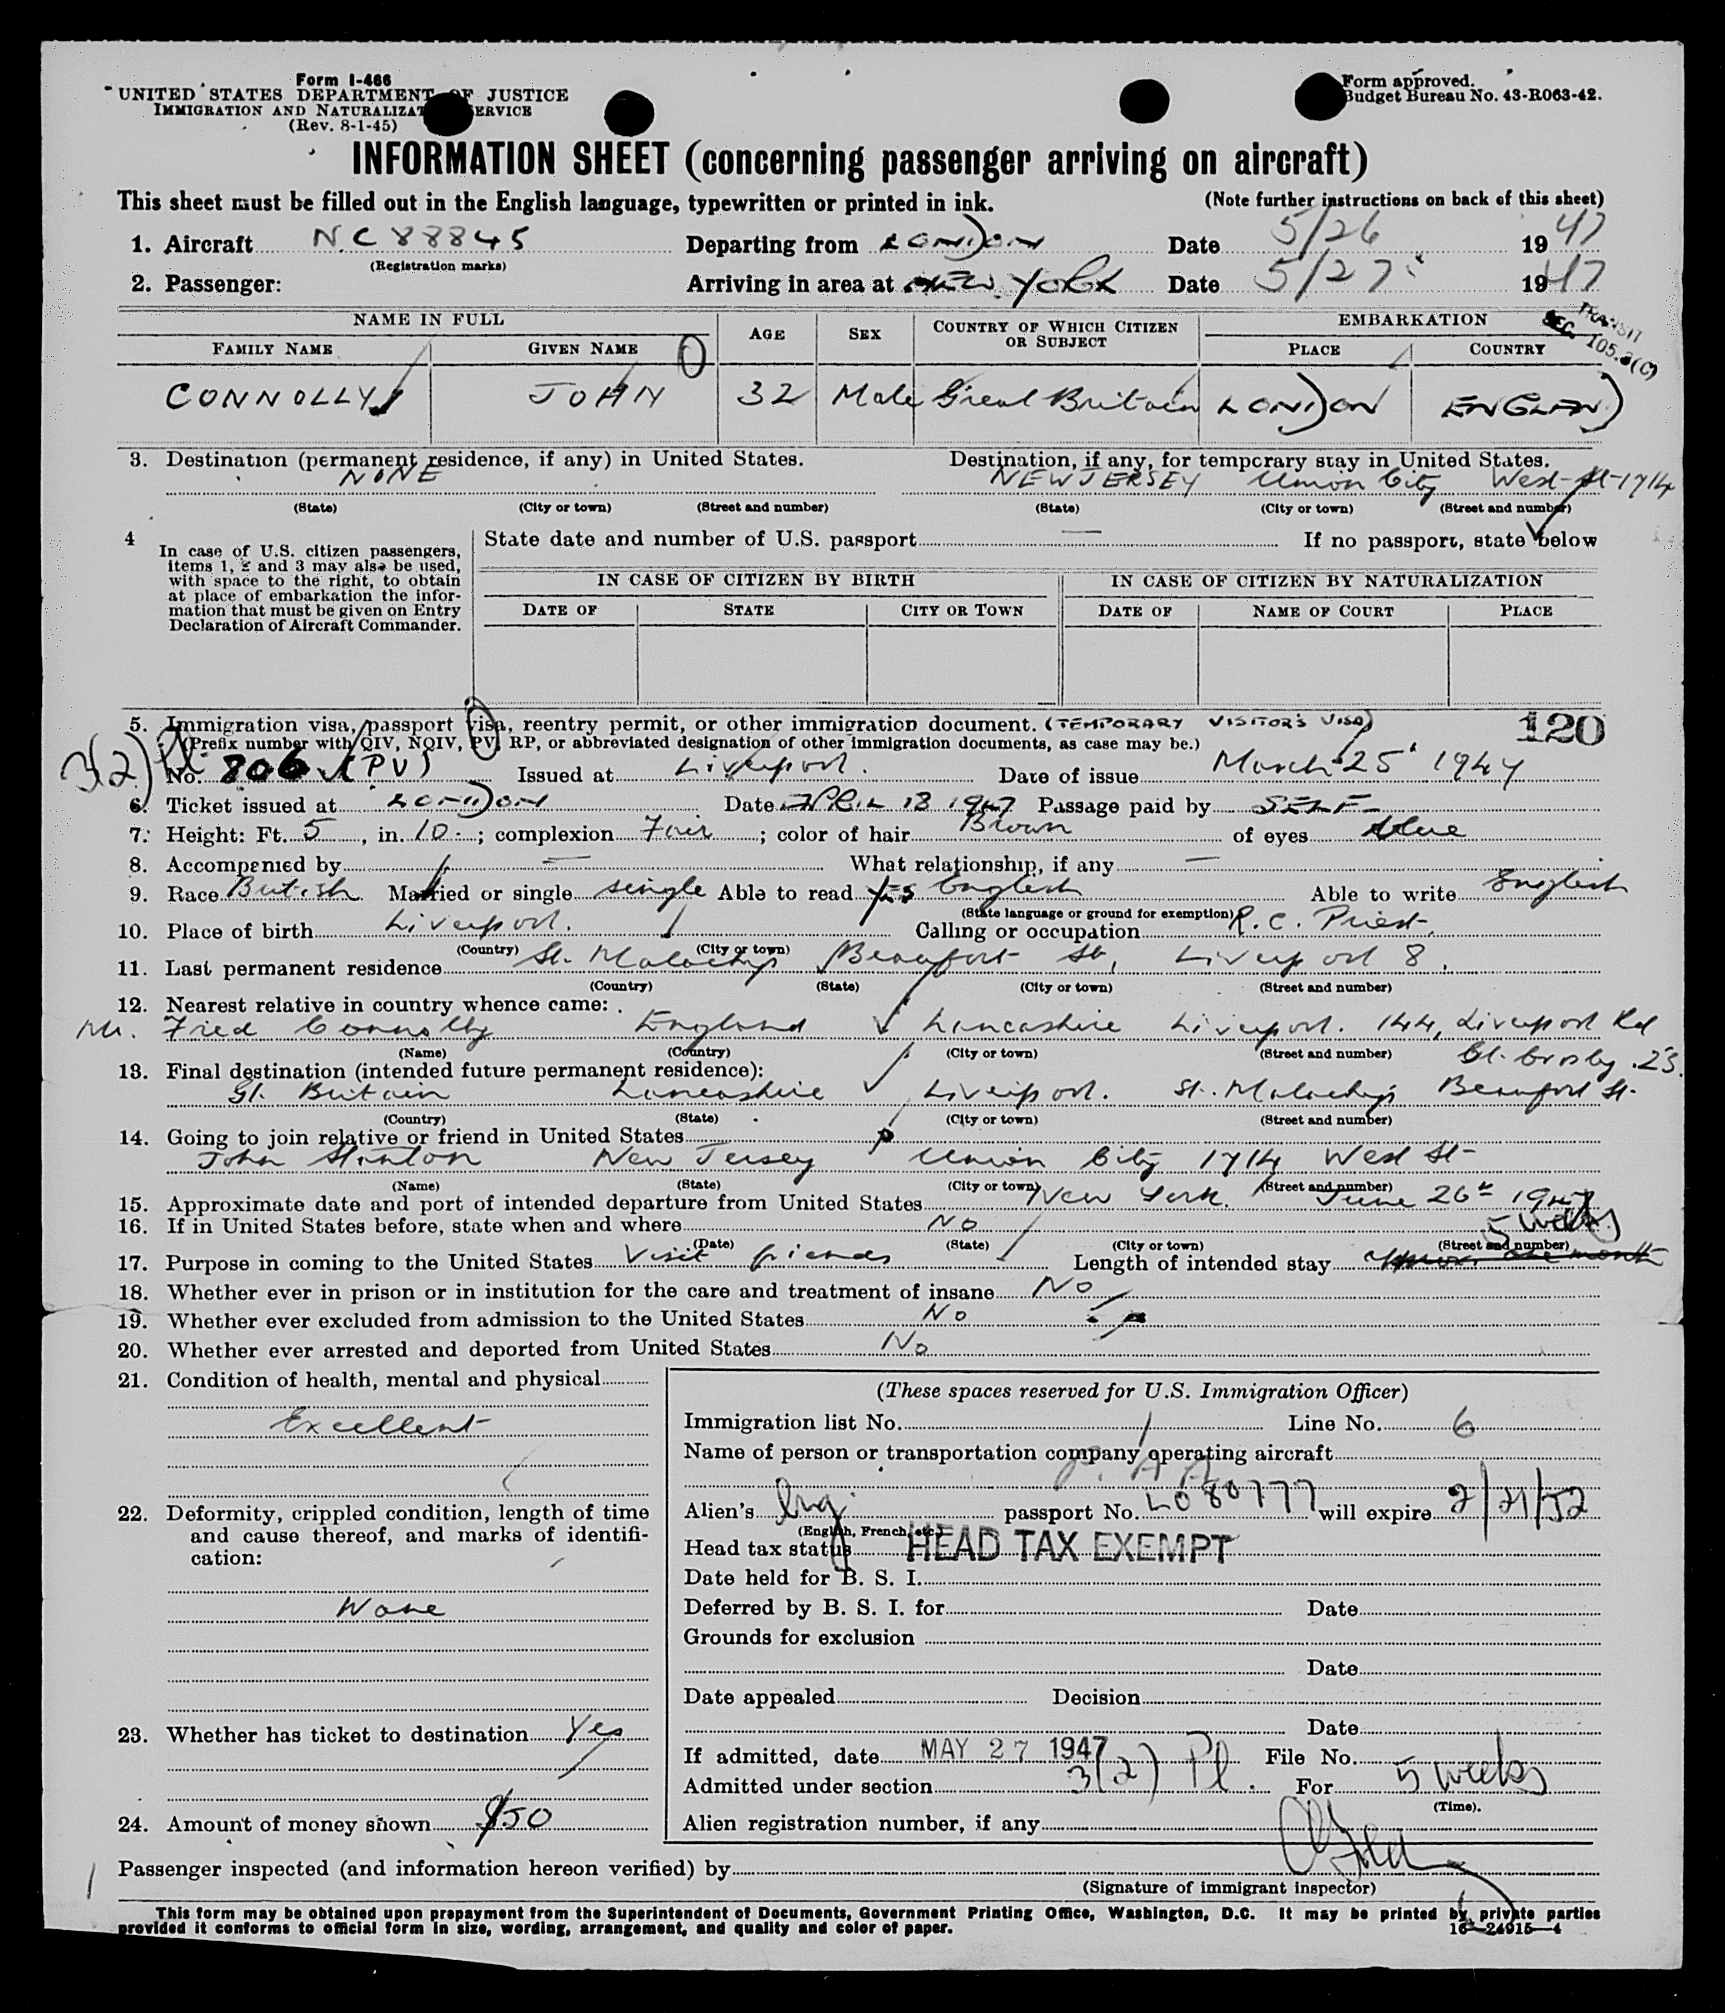 Form I-466
UNITED STATES DEPARTMENT OF JUSTICE
IMMIGRATION AND NATURALIZATION SERVICE
(Rev. 8-1-45)
Form approved.
Budget Bureau No. 43-R063-42.
INFORMATION SHEET (concerning passenger arriving on aircraft)
This sheet must be filled out in the English language, typewritten or printed in ink. (Note further instructions on back of this sheet)
1. Aircraft NC 88845 Departing from LONDON Date 5/26 1947
(Registration marks)
2. Passenger: Arriving in area at NEW YORK Date 5/27 1947
TRANSIT
SEC. 105.3(C)
NAME IN FULL AGE SEX COUNTRY OF WHICH CITIZEN OR SUBJECT EMBARKATION
FAMILY NAME GIVEN NAME PLACE COUNTRY
CONNOLLY JOHN 32 Male Great Britain LONDON ENGLAND
3. Destination (permanent residence, if any) in United States. Destination, if any, for temporary stay in United States.
NONE NEW JERSEY Union City West St 1714
(State) (City or town) (Street and number) (State) (City or town) (Street and number)
4 In case of U.S. citizen passengers, items 1, 2 and 3 may also be used, with space to the right, to obtain at place of embarkation the information that must be given on Entry Declaration of Aircraft Commander.
State date and number of U.S. passport — If no passport, state below
IN CASE OF CITIZEN BY BIRTH IN CASE OF CITIZEN BY NATURALIZATION
DATE OF STATE CITY OR TOWN DATE OF NAME OF COURT PLACE
5. Immigration visa, passport visa, reentry permit, or other immigration document. (TEMPORARY VISITOR'S VISA) 120
(Prefix number with QIV, NQIV, PV, RP, or abbreviated designation of other immigration documents, as case may be.)
3(2) Pl
No. 806 (PV) Issued at Liverpool. Date of issue March 25 1947
6. Ticket issued at LONDON Date APRIL 18 1947 Passage paid by SELF
7. Height: Ft. 5, in. 10; complexion Fair; color of hair Brown of eyes blue
8. Accompanied by — What relationship, if any —
9. Race British Married or single single Able to read yes English Able to write English
(State language or ground for exemption)
10. Place of birth Liverpool. Calling or occupation R.C. Priest.
(Country) (City or town)
11. Last permanent residence St. Malachys Beaufort St, Liverpool 8.
(Country) (State) (City or town) (Street and number)
12. Nearest relative in country whence came:
Mr. Fred Connolly England Lancashire Liverpool. 144, Liverpool Rd
(Name) (Country) (City or town) (Street and number) Gt. Crosby. 23.
13. Final destination (intended future permanent residence):
Gt. Britain Lancashire Liverpool. St. Malachy's Beaufort St.
(Country) (State) (City or town) (Street and number)
14. Going to join relative or friend in United States
John Stanton New Jersey Union City 1714 West St
(Name) (State) (City or town) (Street and number)
15. Approximate date and port of intended departure from United States New York. June 26th 1947
16. If in United States before, state when and where No
(Date) (State) (City or town) (Street and number)
5 weeks
17. Purpose in coming to the United States Visit friends Length of intended stay one month
18. Whether ever in prison or in institution for the care and treatment of insane No
19. Whether ever excluded from admission to the United States No
20. Whether ever arrested and deported from United States No
21. Condition of health, mental and physical
Excellent
22. Deformity, crippled condition, length of time and cause thereof, and marks of identification:
None
23. Whether has ticket to destination Yes
24. Amount of money shown $50
(These spaces reserved for U.S. Immigration Officer)
Immigration list No. 1 Line No. 6
Name of person or transportation company operating aircraft
P.A.A
Alien's Eng passport No. L080777 will expire 2/21/52
(English, French, etc.)
Head tax status HEAD TAX EXEMPT
Date held for B. S. I.
Deferred by B. S. I. for Date
Grounds for exclusion
Date
Date appealed Decision
Date
If admitted, date MAY 27 1947 File No.
Admitted under section 3(2) Pl. For 5 weeks
(Time).
Alien registration number, if any
Passenger inspected (and information hereon verified) by
(Signature of immigrant inspector)
This form may be obtained upon prepayment from the Superintendent of Documents, Government Printing Office, Washington, D.C. It may be printed by private parties
provided it conforms to official form in size, wording, arrangement, and quality and color of paper. 16—24915-4